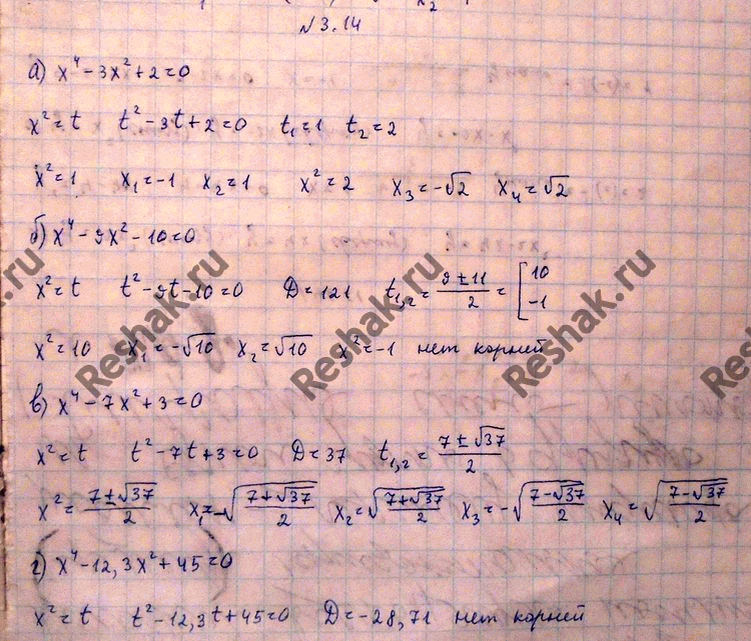 №3.14
а) x⁴-3x²+2=0
x²=t t²-3t+2=0 t₁=1 t₂=2
x²=1 x₁=-1 x₂=1 x²=2 x₃=-√2 x₄=√2
б) x⁴-9x²-10=0
x²=t t²-9t-10=0 D=121 t₁,₂=(9±11)/2=[10 -1
x²=10 x₁=-√10 x₂=√10 x²=-1 нет корней
в) x⁴-7x²+3=0
x²=t t²-7t+3=0 D=37 t₁,₂=(7±√37)/2
x²=(7±√37)/2 x₁=-√((7+√37)/2) x₂=√((7+√37)/2) x₃=-√((7-√37)/2) x₄=√((7-√37)/2)
г) x⁴-12,3x²+45=0
x²=t t²-12,3t+45=0 D=-28,71 нет корней
Reshak.ru
Reshak.ru
Reshak.ru